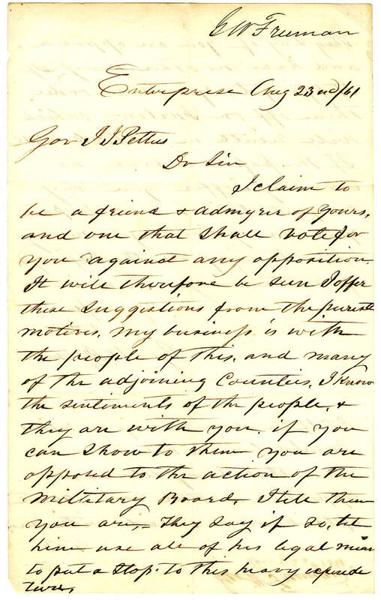 G W Freeman
Enterprise Aug 23nd/61
Gov J J Pettus
Dr Sir
I claim to
be a friend & admyrer of yours,
and one that shall vote for
you against any opposition.
It will therefore be seen I offer
these suggistions from the purest
motives, my business is with
the people of this, and many
of the adjoining Counties, I know
the sentiments of the people, &
they are with you, if you
can show to them you are
opposed to the action of the
Military Board, I tell them
you are, They say if so, let
him use all of his legal
to put a stop to this heavy expende
tures